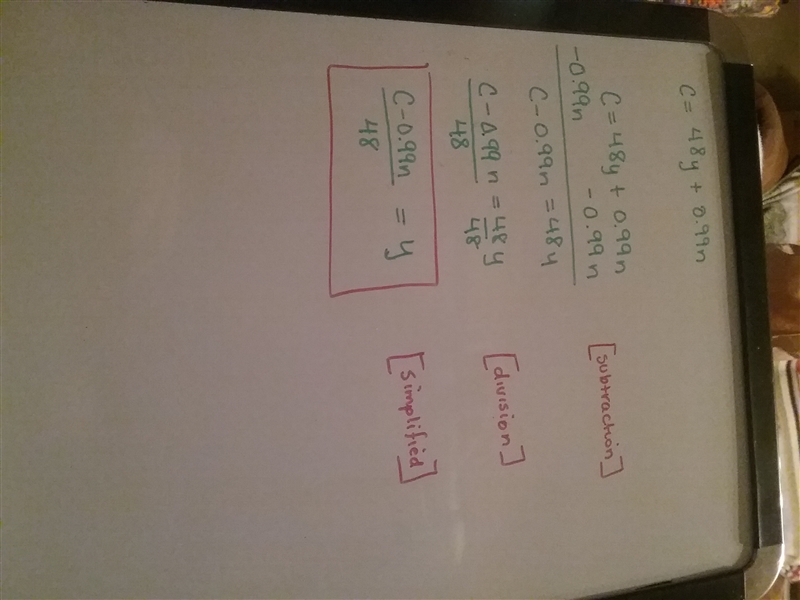 C = 48y + 0.99n
C = 48y + 0.99n [subtraction]
-0.99n - 0.99n
C - 0.99n = 48y
C - 0.99n = 48y [division]
48 48
C - 0.99n = y [simplified]
48